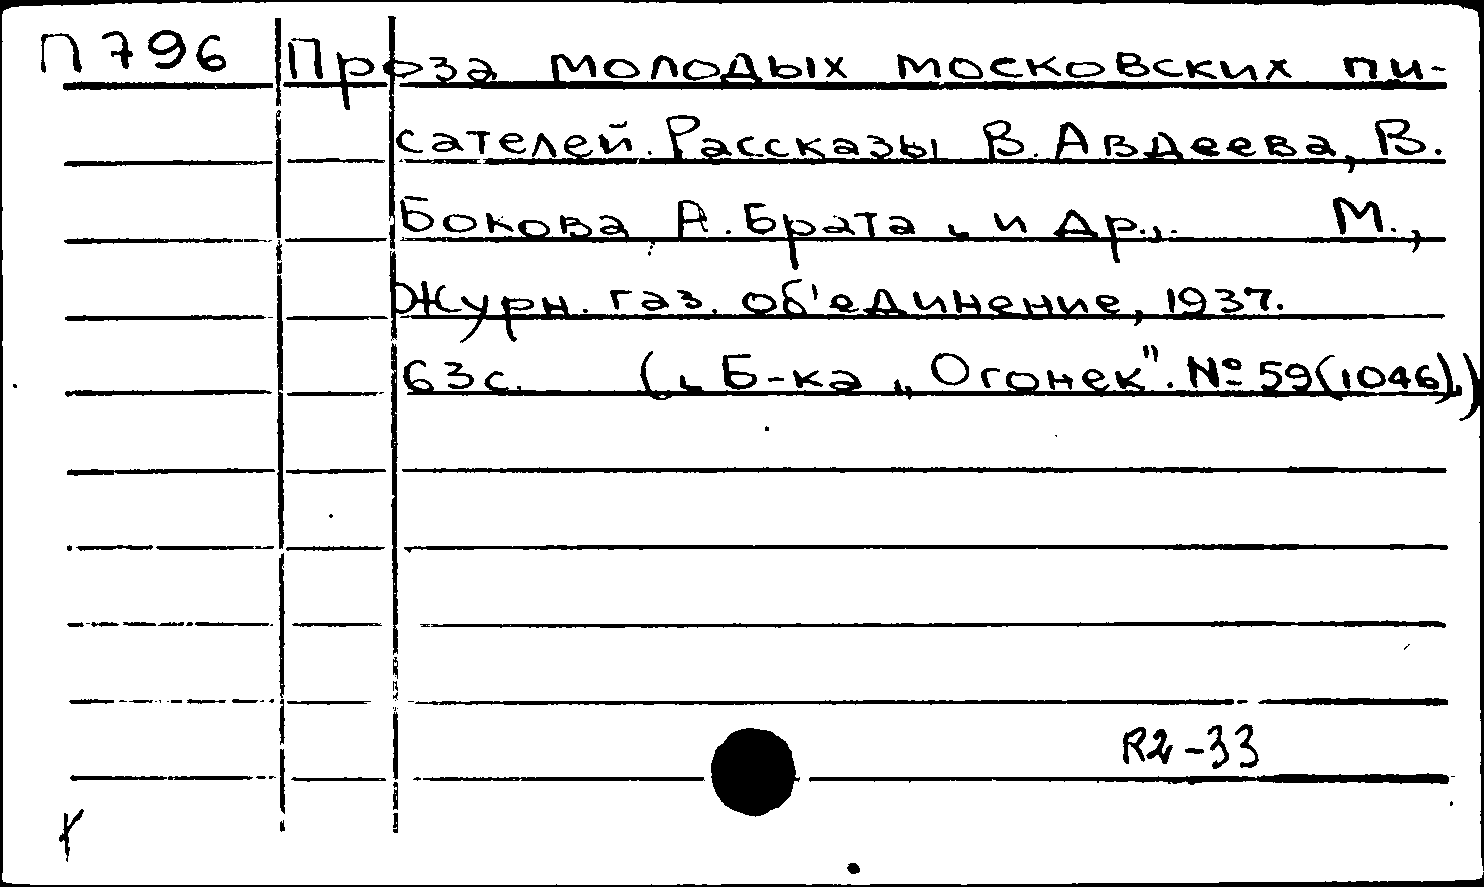 П 796 Проза молодых московских пи-
сателей. Рассказы В. Авдеева, В.
Бокова, А. Брата, и др.,. М.,
Журн. газ. об'единение, 1937.
63с. („Б-ка „Огонек". № 59(1046).)
R2-33